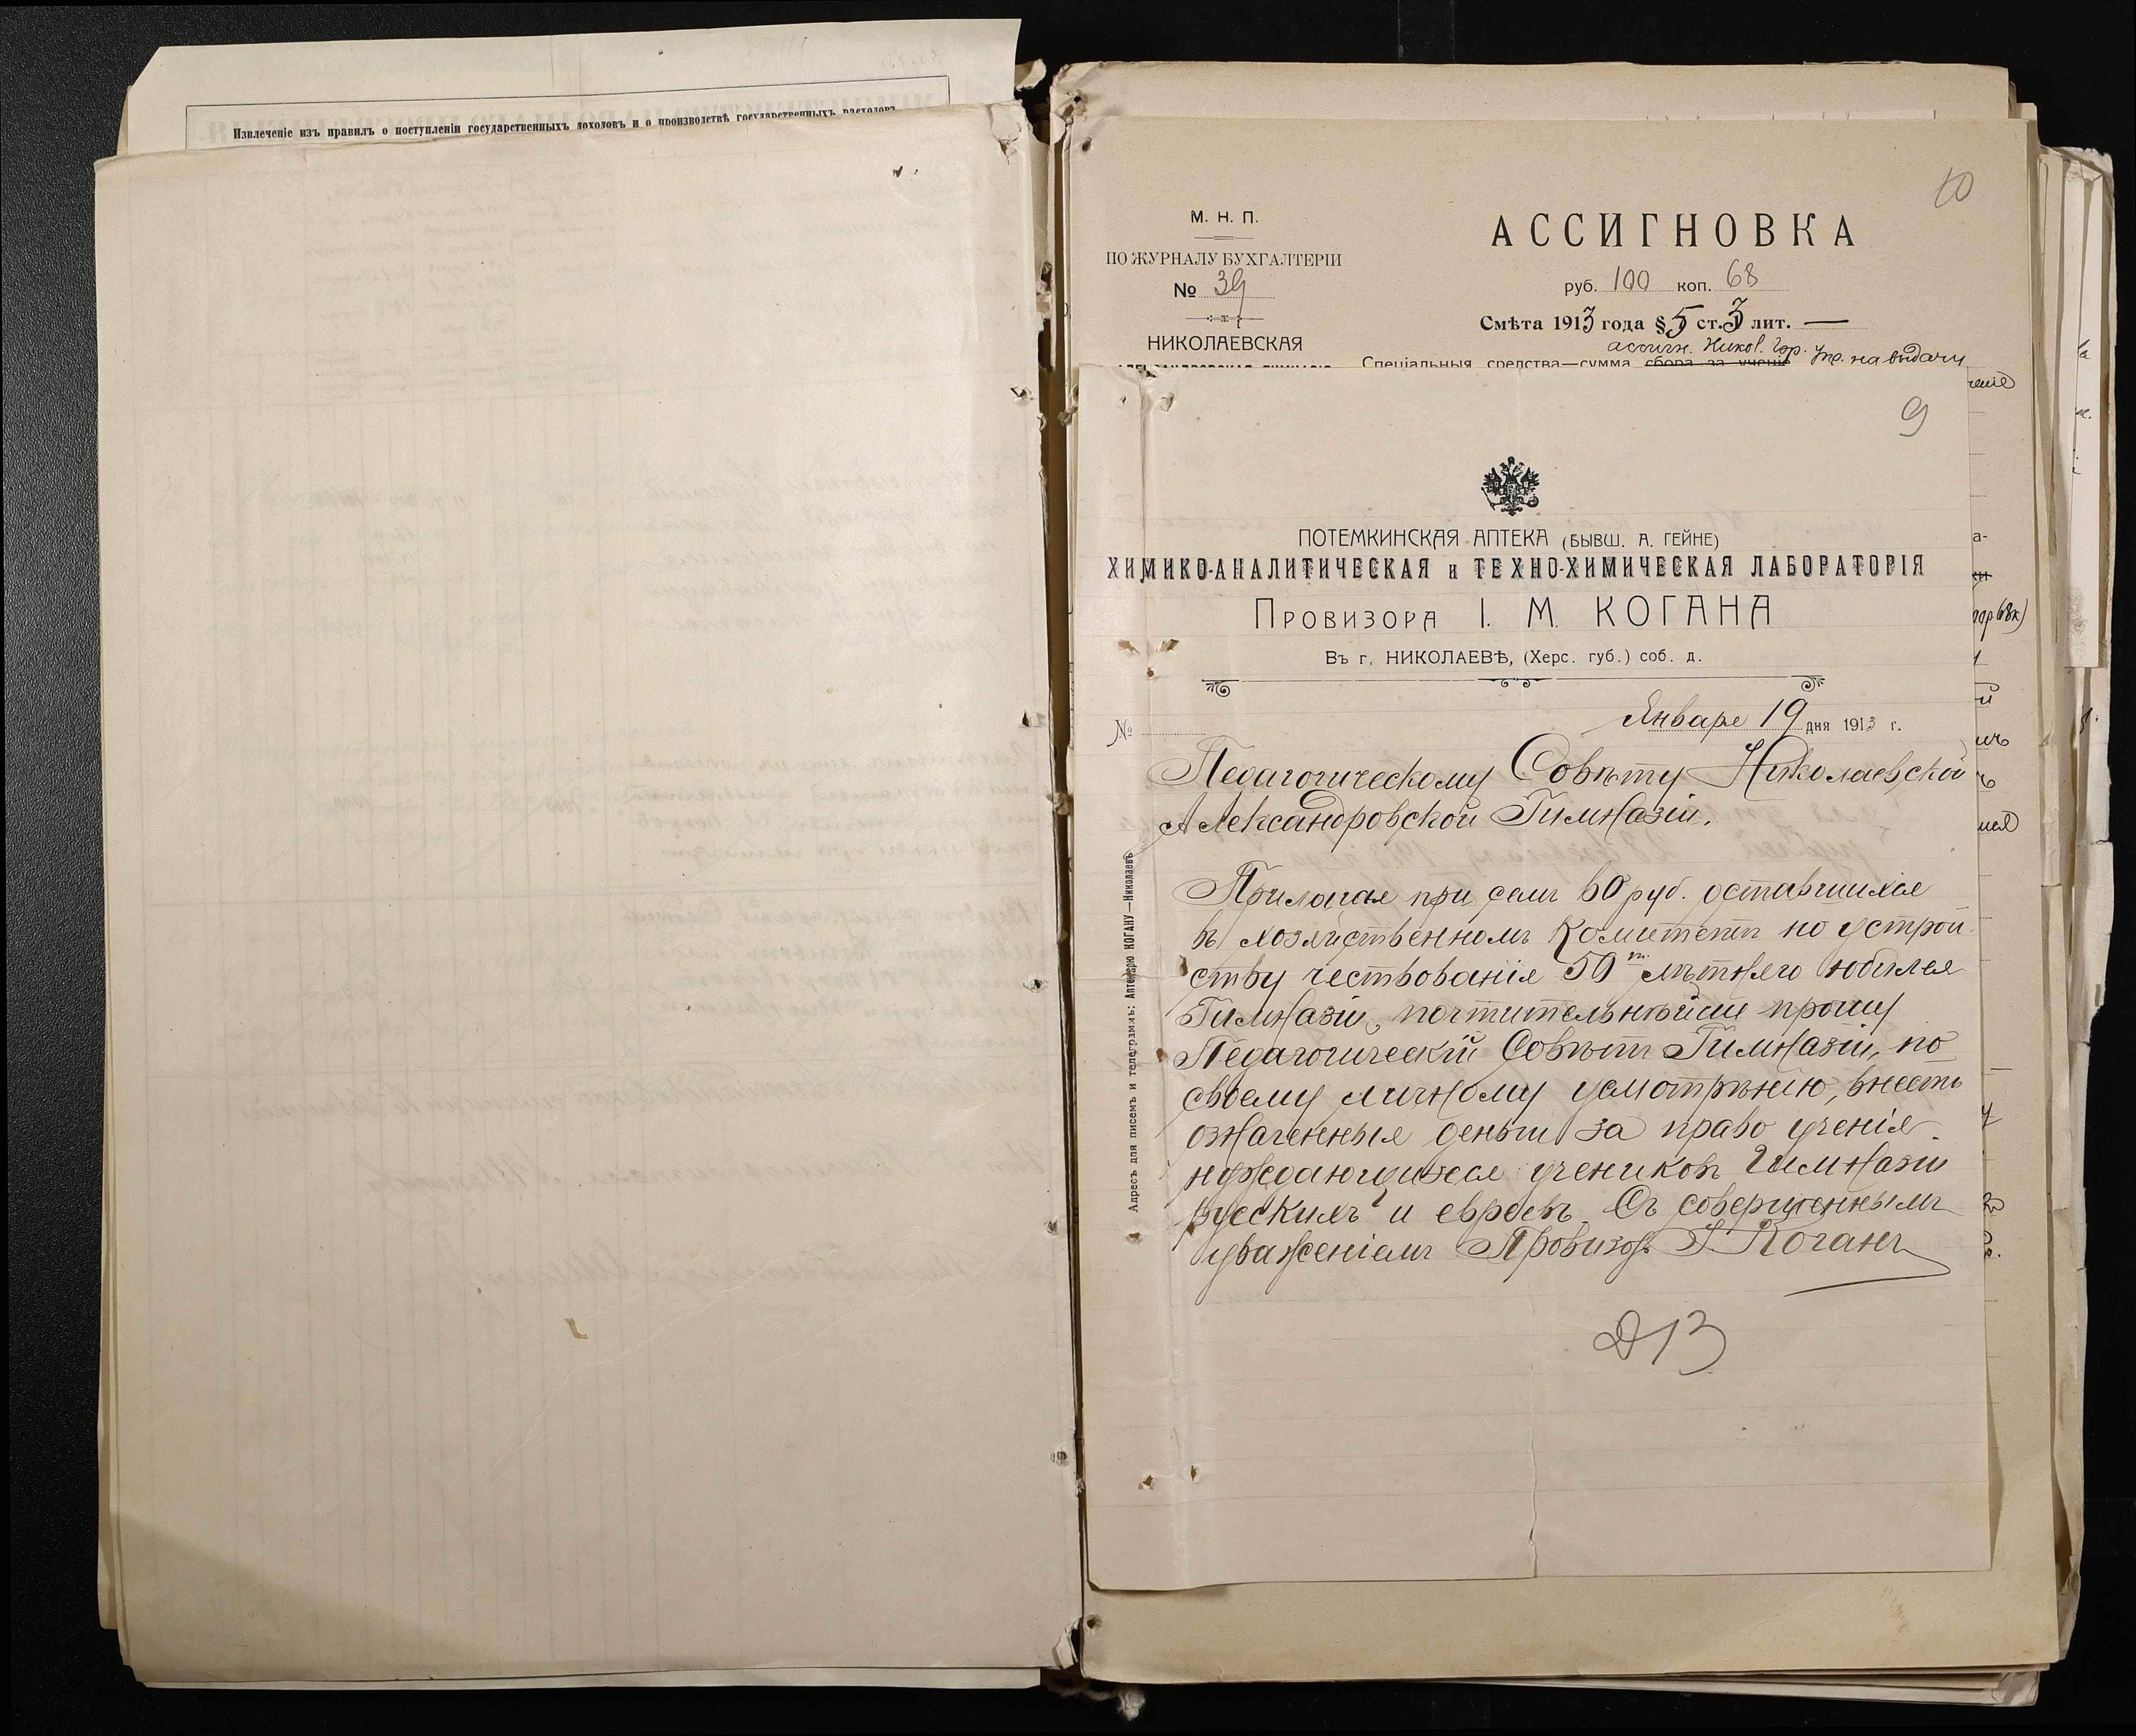 Извлеченіе изъ правилъ о поступленіи государственныхъ доходовъ и о производствѣ государственныхъ расходовъ
10
М. Н. П.
ПО ЖУРНАЛУ БУХГАЛТЕРІИ
№ 39
НИКОЛАЕВСКАЯ
АССИГНОВКА
руб. 100 коп. 68
Смѣта 1913 года § 5 ст. 3 лит. —
ассигн. Никол. Гор. Упр. на выдачу
Спеціальныя средства—сумма сбора за ученіе
9
ПОТЕМКИНСКАЯ АПТЕКА (БЫВШ. А. ГЕЙНЕ)
ХИМИКО-АНАЛИТИЧЕСКАЯ и ТЕХНО-ХИМИЧЕСКАЯ ЛАБОРАТОРІЯ
ПРОВИЗОРА І. М. КОГАНА
Въ г. НИКОЛАЕВѢ, (Херс. губ.) соб. д.
Январе 19 дня 1913 г.
№
Педагогическому Совѣту Николаевской
Александровской Гимназіи.
Прилагая при семъ 60 руб. оставшихся
въ хозяйственномъ Комитетѣ по устрой
ству чествованія 50ти лѣтняго юбилея
Гимназіи, почтительнѣйше прошу
Педагогическій Совѣтъ Гимназіи, по
своему личному усмотрѣнію, внести
означенныя деньги за право ученія
нуждающихся учениковъ Гимназіи
русскихъ и евреевъ. Съ совершеннымъ
уваженіемъ Провизоръ І. Коганъ
Адресъ для писемъ и телеграммъ: Аптекарю КОГАНУ—Николаевъ